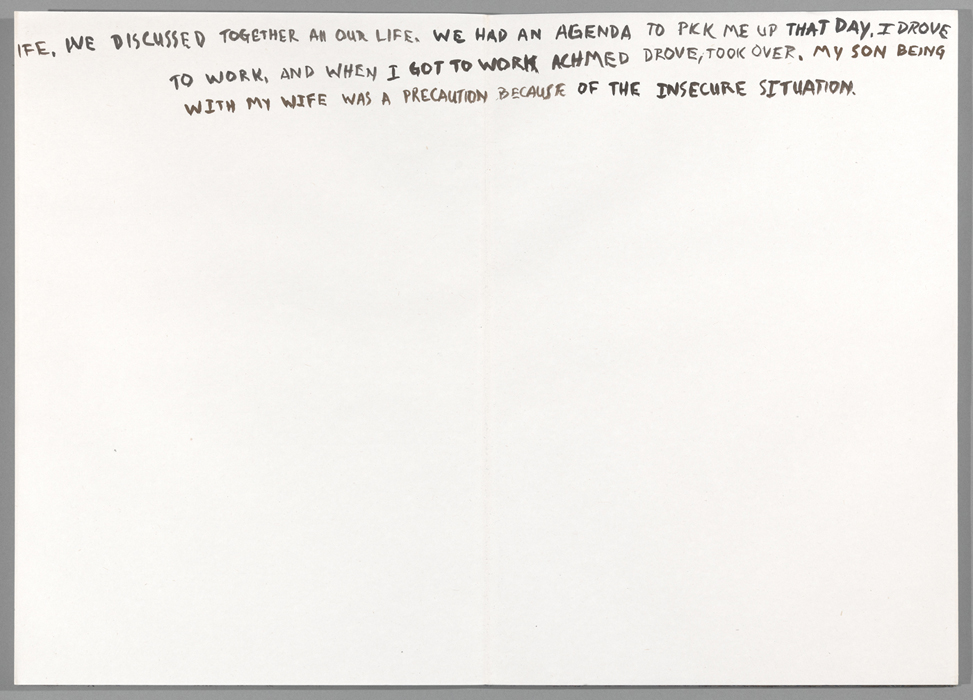 IFE, WE DISCUSSED TOGETHER All OUR LIFE. WE HAD AN AGENDA TO PICK ME UP THAT DAY, I DROVE
TO WORK, AND WHEN I GOT TO WORK ACHMED DROVE, TOOK OVER. MY SON BEING
WITH MY WIFE WAS A PRECAUTION BECAUSE OF THE INSECURE SITUATION.